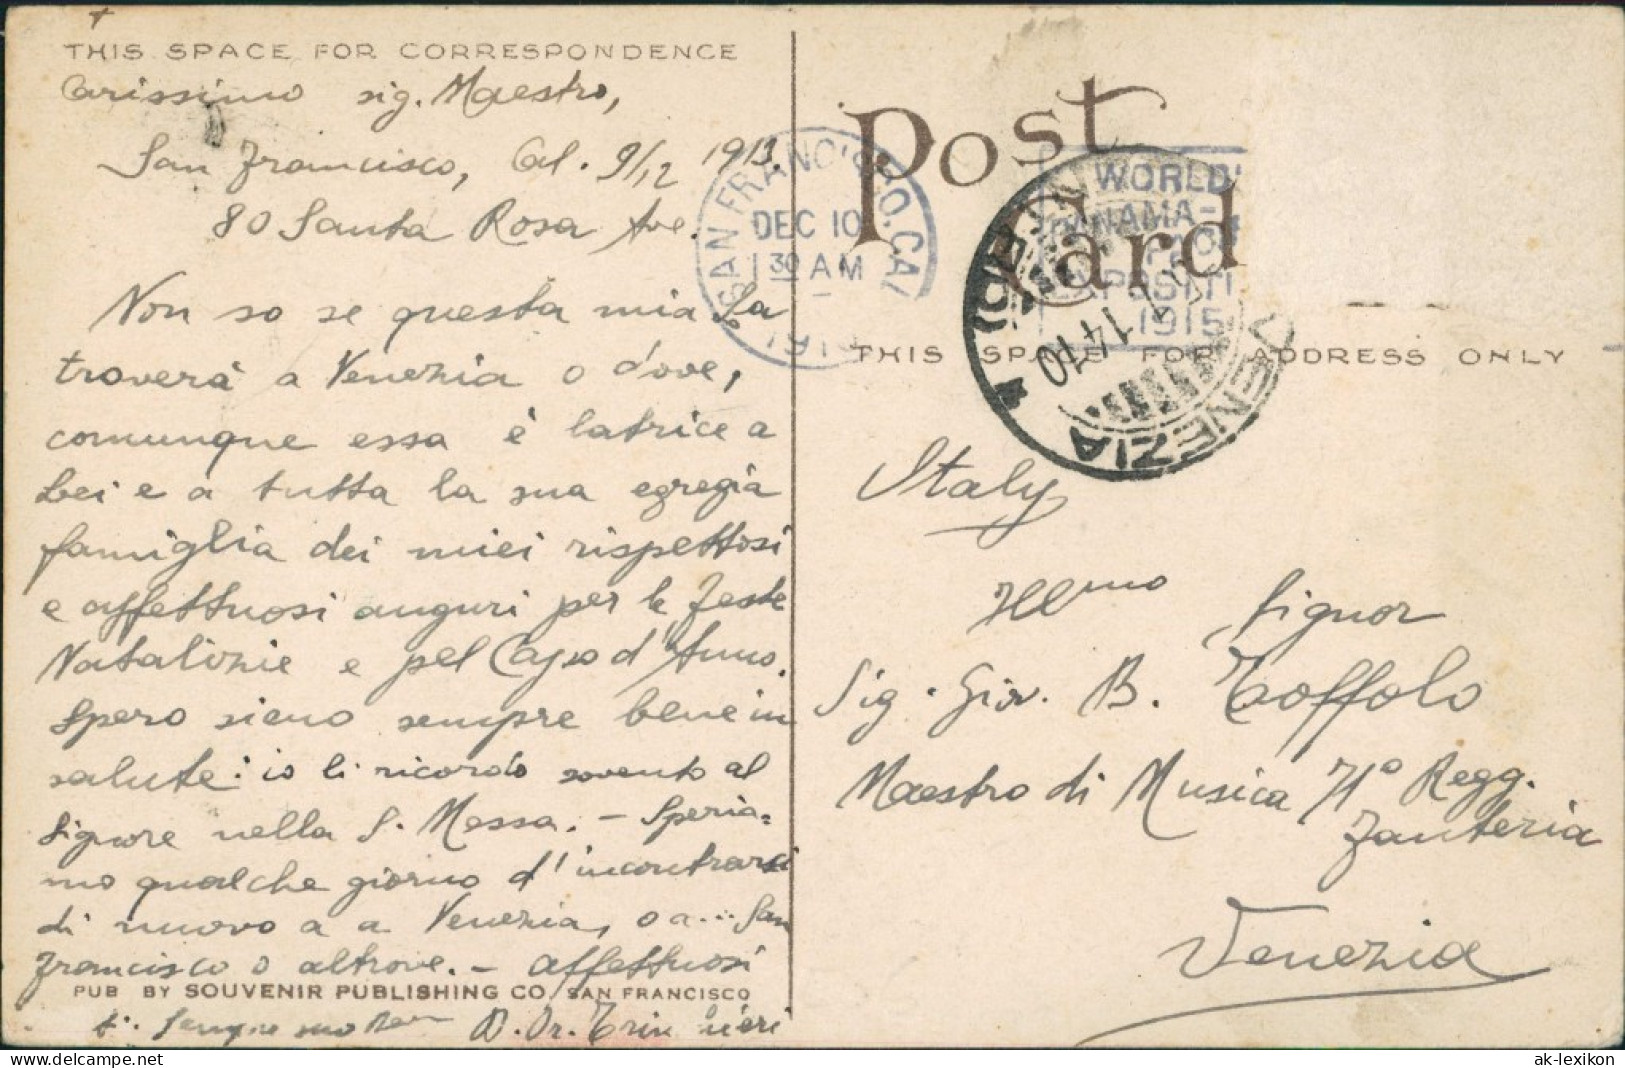 THIS SPACE FOR CORRESPONDENCE
Carissimo sig. Maestro,
San Francisco, Cal. 9/12 1913.
80 Santa Rosa Ave.
Non so se questa mia La
troverà a Venezia o dove,
comunque essa è latrice a
Lei e a tutta la sua egregia
famiglia dei miei rispettosi
e affettuosi auguri per le Feste
Natalizie e pel Capo d'Anno.
Spero sieno sempre bene in
salute: io li ricordo sovente al
Signore nella S. Messa. – Speria=
mo qualche giorno d'incontrarci
di nuovo a a Venezia, o a... San
Francisco o altrove. – Affettuosi
PUB BY SOUVENIR PUBLISHING CO, SAN FRANCISCO
Sempre suo D. Or. Trinchieri
Post
Card
SAN FRANCISCO, CAL
DEC 10
30 AM
191
WORLD'
PANAMA-
PACI
EXPOSITI
1915
VENEZIA
14 10
THIS SPACE FOR ADDRESS ONLY
Italy
Illmo Signor
Sig. Giov. B. Toffolo
Maestro di Musica 71° Regg.
Fanteria
Venezia
ak-lexikon